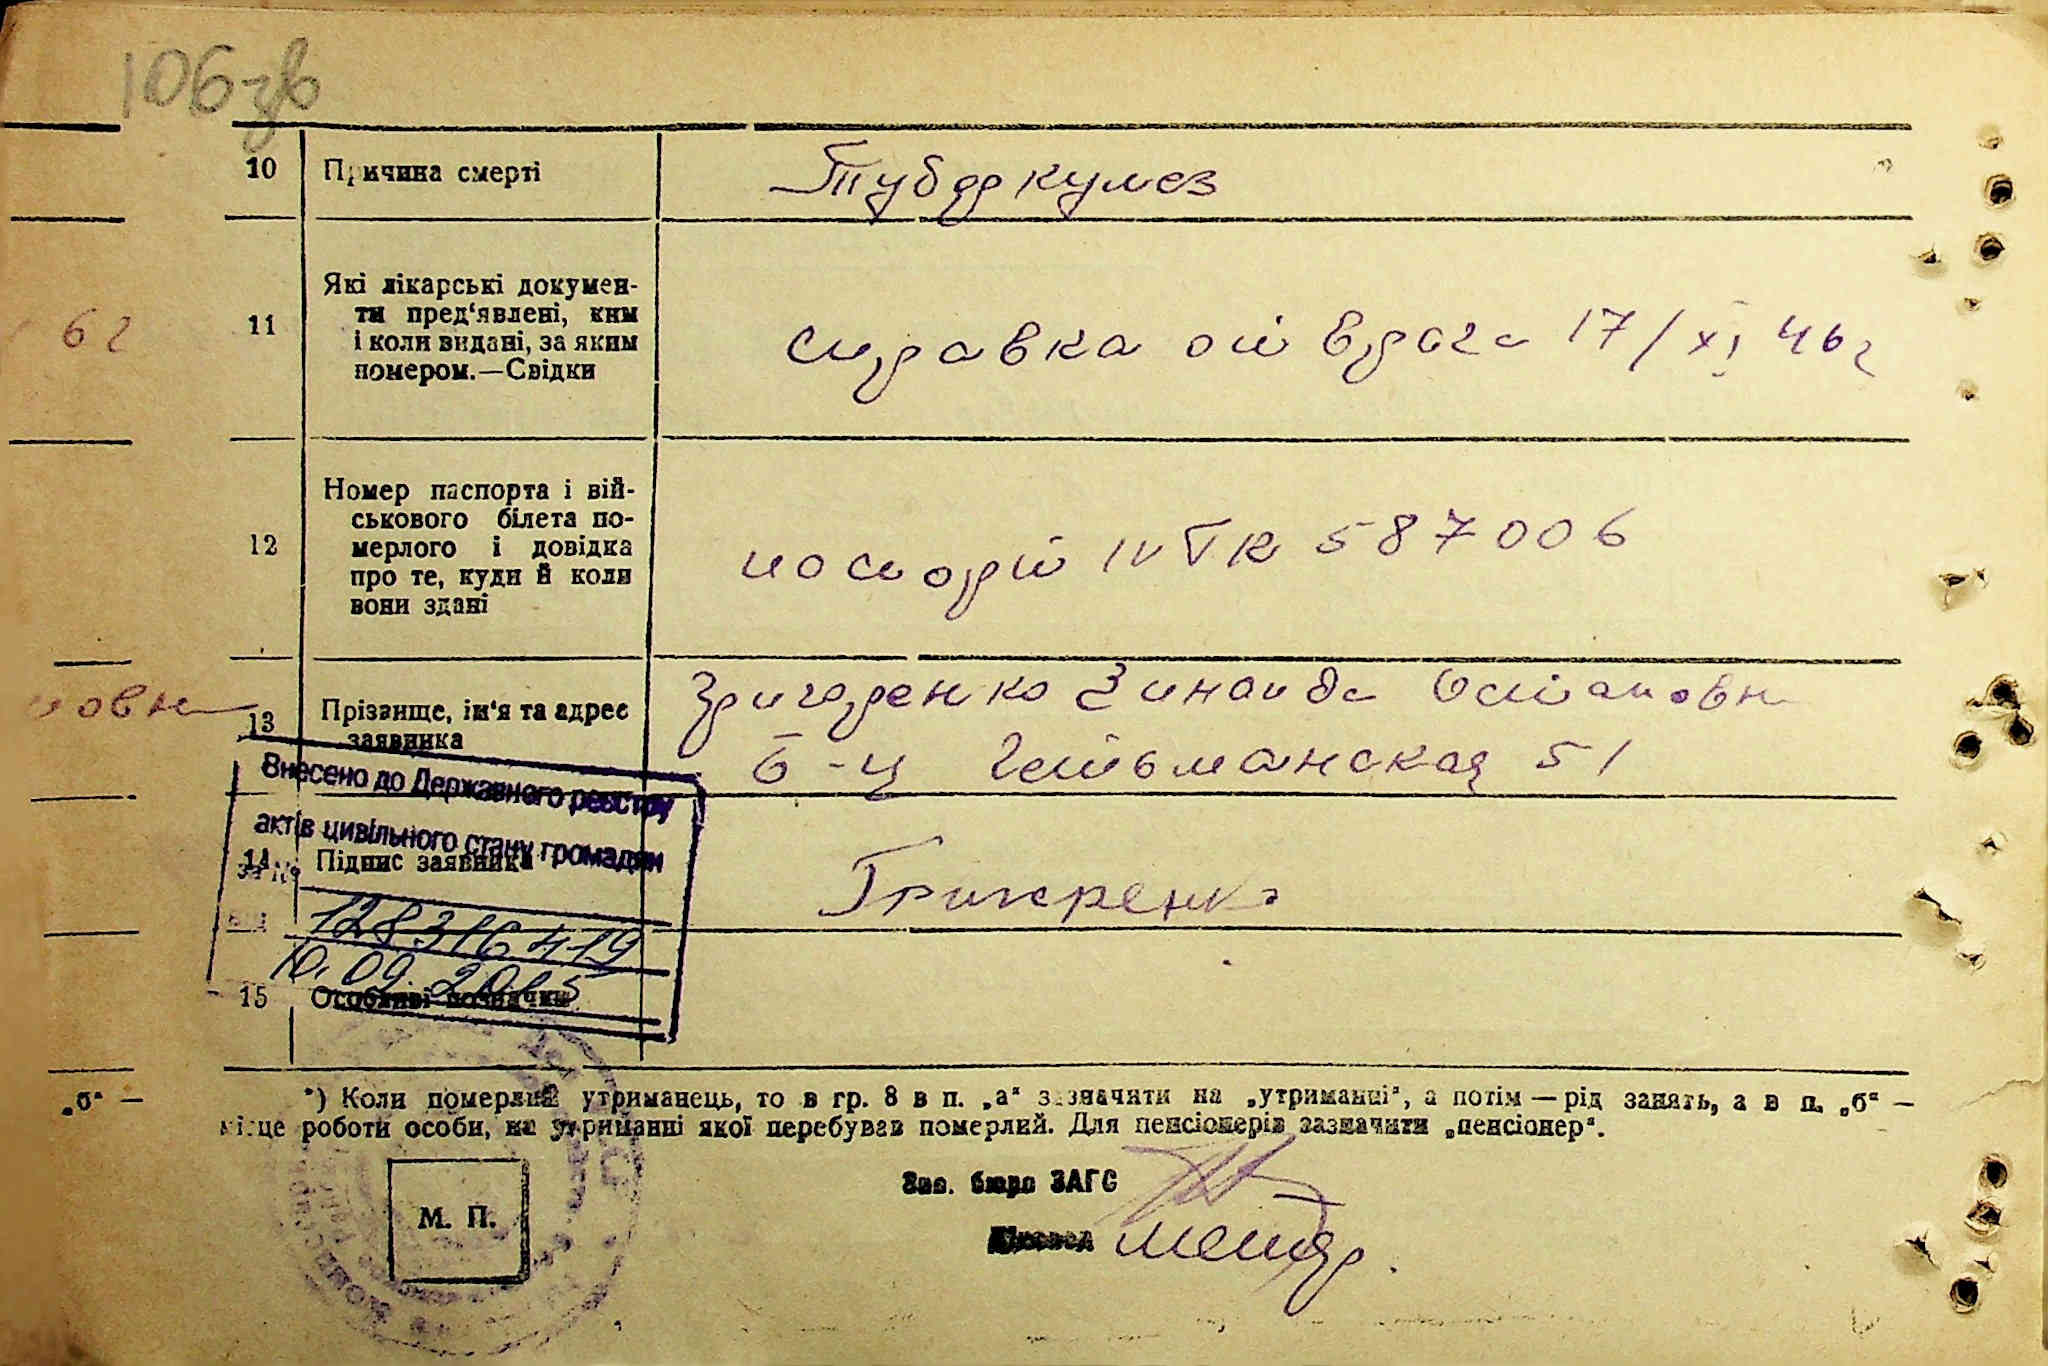 106зв
10 Причина смерті
Туберкулез
62
11 Які лікарські докумен-
ти пред‘явлені, ким
і коли видані, за яким
номером.—Свідки
справка от врача 17/XI 46г
12 Номер паспорта і вій-
ськового білета по-
мерлого і довідка
про те, куди й коли
вони здані
паспорт IV ТК 587006
овн
13 Прізвище, ім‘я та адрес
заявника
Григоренко Зинаида Остаповн
Б-Ц Гетьманская 51
Внесено до Державного реєстру
актів цивільного стану громадян
за №
від
128316419
10.09.2015
14 Підпис заявника
Григоренко
15 Особливі позначки
„б“ —
*) Коли померлий утриманець, то в гр. 8 в п. „а“ зазначити на „утриманні“, а потім — рід занять, а в п. „б“ —
місце роботи особи, на утриманні якої перебував померлий. Для пенсіонерів зазначити „пенсіонер“.
М. П.
Зав. бюро ЗАГС
Діловод